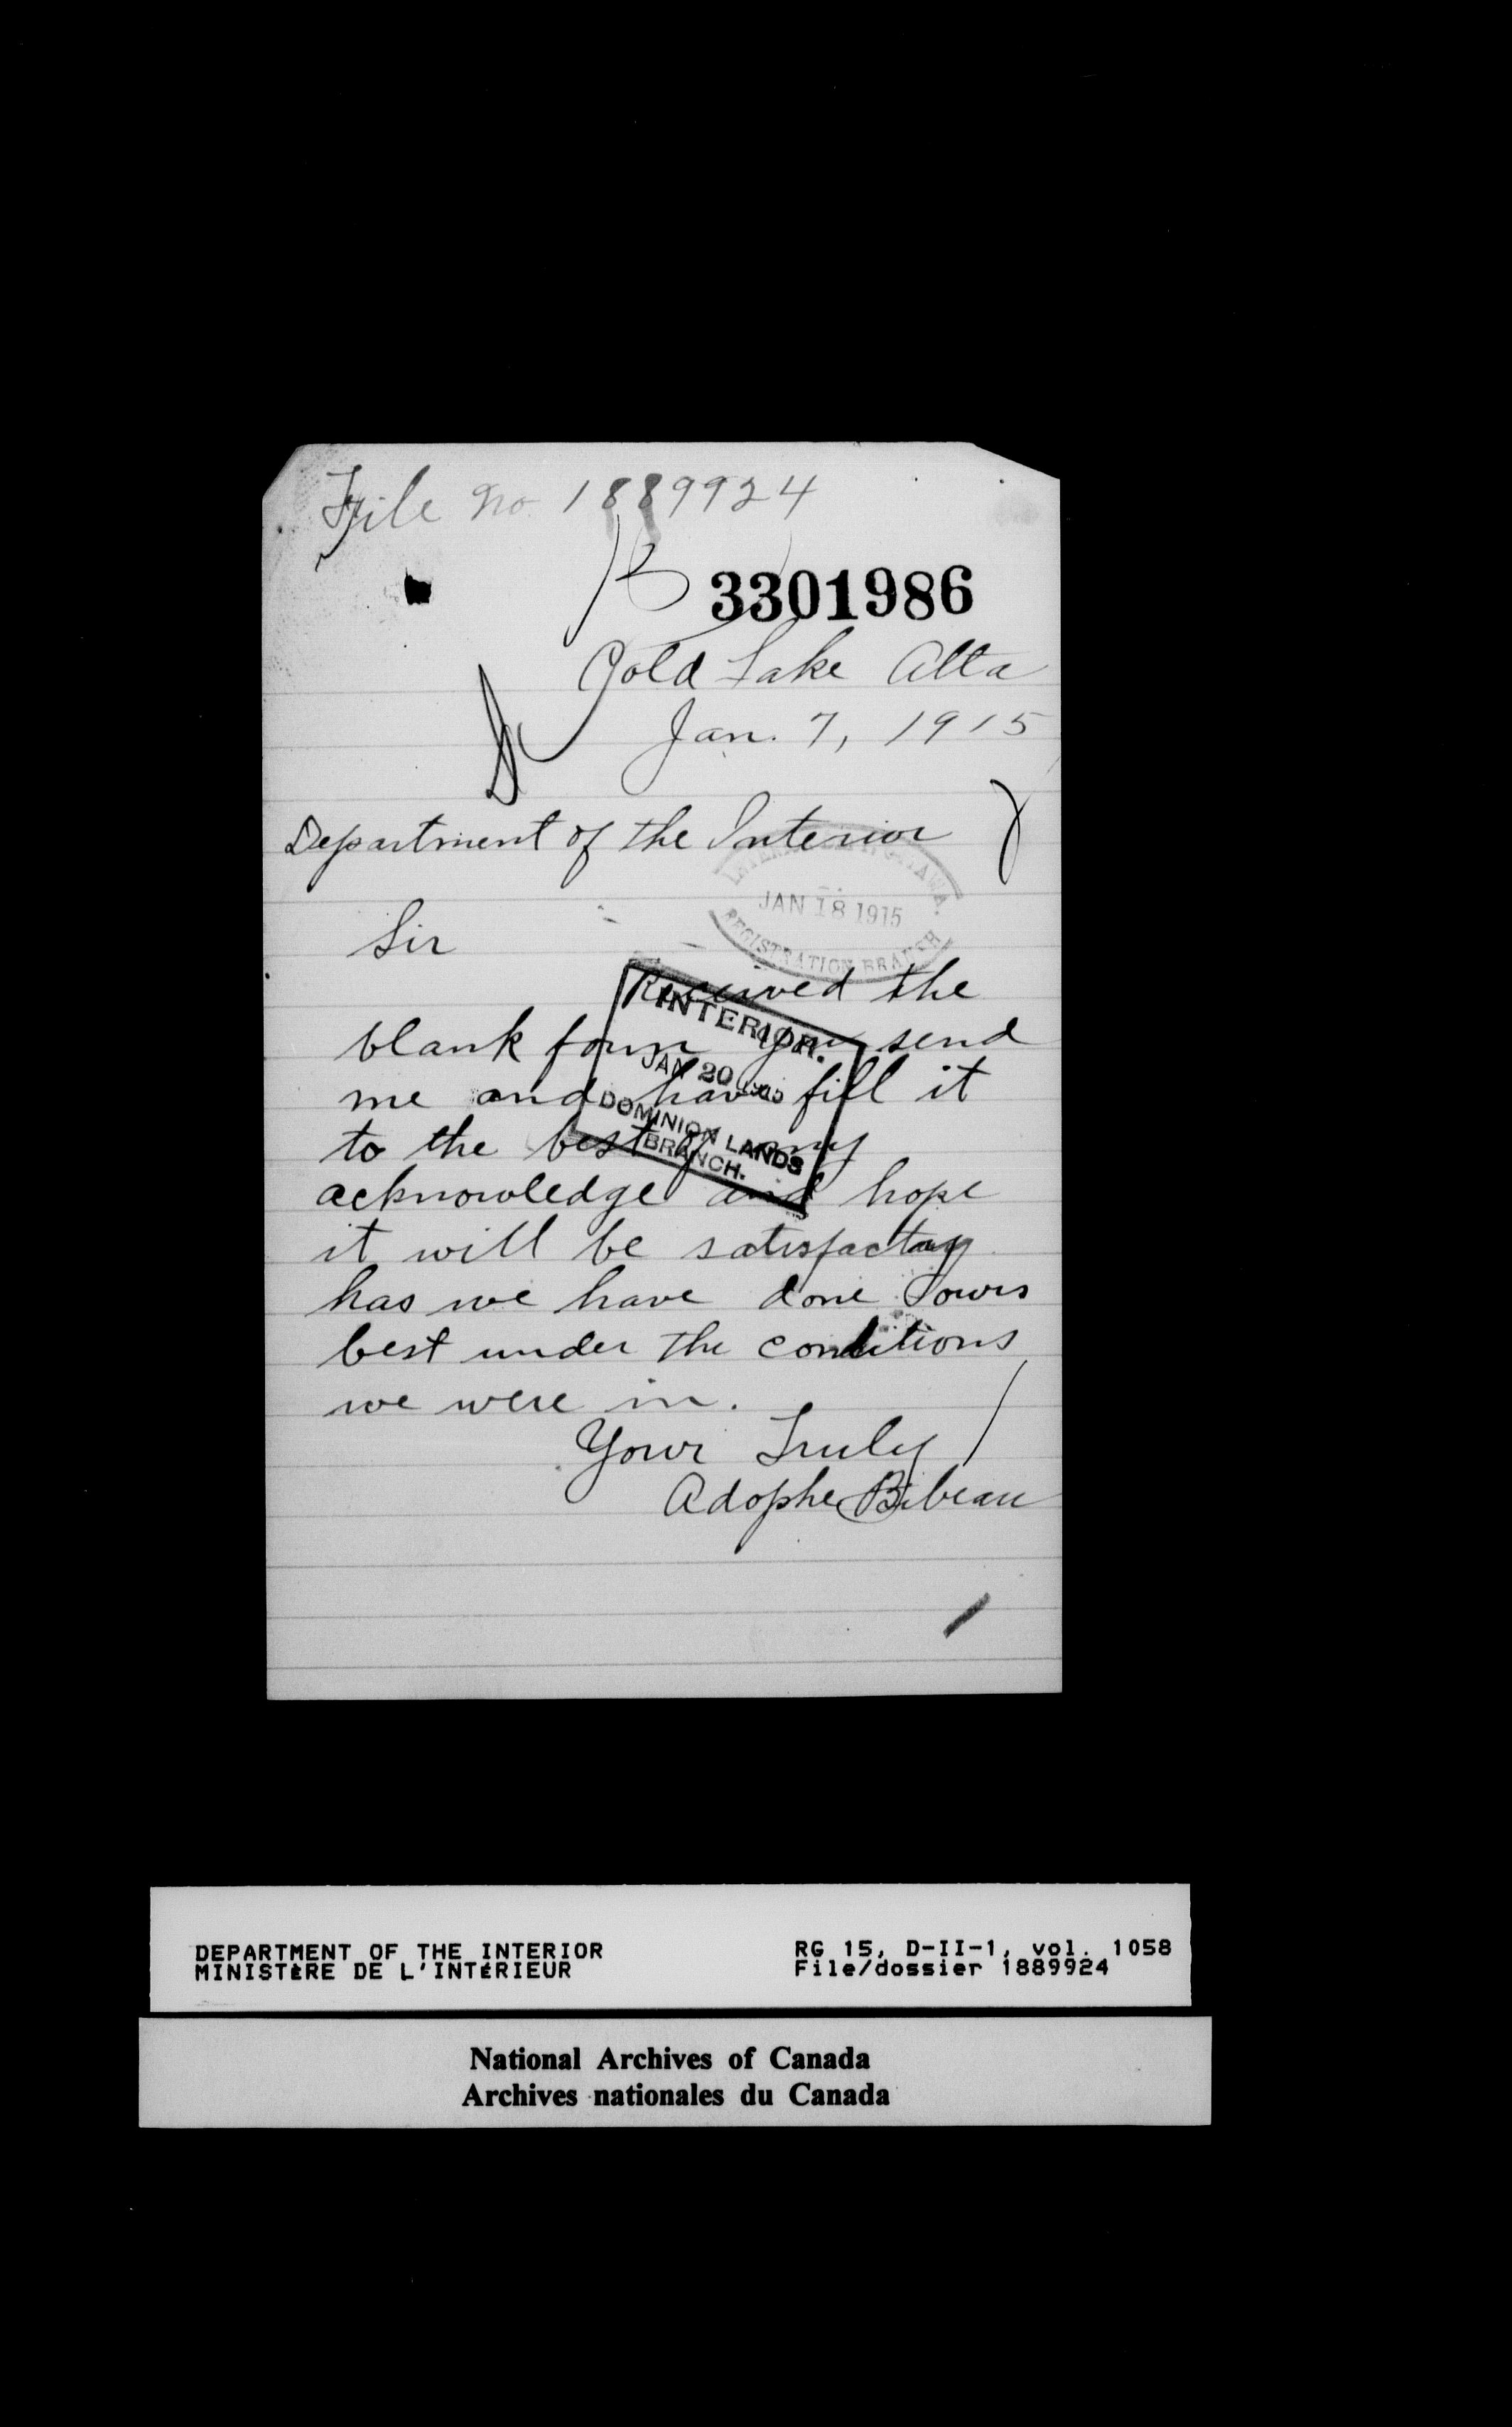 File no 1889924
B 3301986
Cold Lake Alta
Jan. 7, 1915
Department of the Interior
INTERIOR OTTAWA.
JAN 18 1915
REGISTRATION BRANCH
Sir
Received the
blank form you send
me and have fill it
to the best of my
acknowledge and hope
it will be satisfactory
has we have done ours
best under the conditions
we were in.
Your Truly
Adophe Bibeau
INTERIOR.
JAN 20
DOMINION LANDS
BRANCH.
DEPARTMENT OF THE INTERIOR
MINISTÈRE DE L'INTÉRIEUR
RG 15, D-II-1, vol. 1058
File/dossier 1889924
National Archives of Canada
Archives nationales du Canada